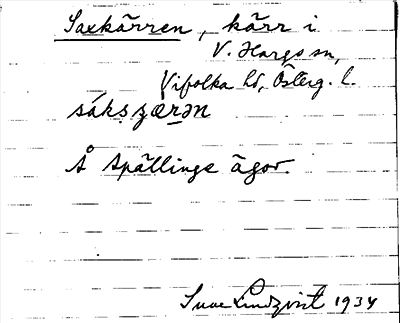 Saxkärren, kärr i
V. Hargs sn,
Vifolka hd, Österg. l.
sákṣʒæṛən
Å Spällinge ägor.
Sune Lindqvist 1934